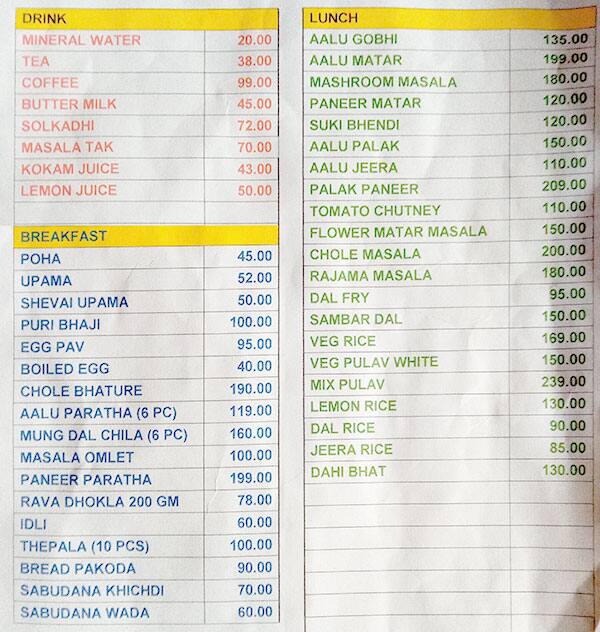 DRINK
MINERAL WATER 20.00
TEA 38.00
COFFEE 99.00
BUTTER MILK 45.00
SOLKADHI 72.00
MASALA TAK 70.00
KOKAM JUICE 43.00
LEMON JUICE 50.00
BREAKFAST
POHA 45.00
UPAMA 52.00
SHEVAI UPAMA 50.00
PURI BHAJI 100.00
EGG PAV 95.00
BOILED EGG 40.00
CHOLE BHATURE 190.00
AALU PARATHA (6 PC) 119.00
MUNG DAL CHILA (6 PC) 160.00
MASALA OMLET 100.00
PANEER PARATHA 199.00
RAVA DHOKLA 200 GM 78.00
IDLI 60.00
THEPALA (10 PCS) 100.00
BREAD PAKODA 90.00
SABUDANA KHICHDI 70.00
SABUDANA WADA 60.00
LUNCH
AALU GOBHI 135.00
AALU MATAR 199.00
MASHROOM MASALA 180.00
PANEER MATAR 120.00
SUKI BHENDI 120.00
AALU PALAK 150.00
AALU JEERA 110.00
PALAK PANEER 209.00
TOMATO CHUTNEY 110.00
FLOWER MATAR MASALA 150.00
CHOLE MASALA 200.00
RAJAMA MASALA 180.00
DAL FRY 95.00
SAMBAR DAL 150.00
VEG RICE 169.00
VEG PULAV WHITE 150.00
MIX PULAV 239.00
LEMON RICE 130.00
DAL RICE 90.00
JEERA RICE 85.00
DAHI BHAT 130.00